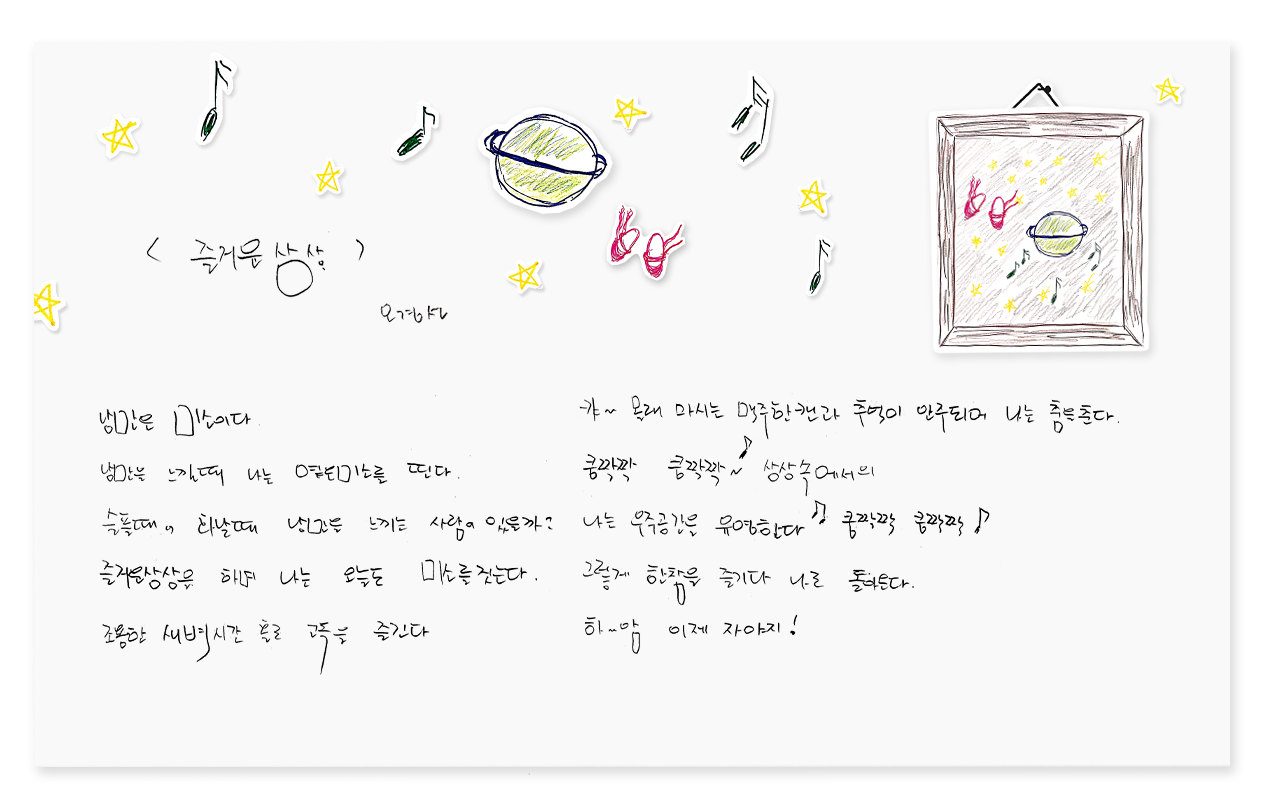 < 즐거운 상상 >
오경하
낭만은 미소이다.
낭만을 느낄때 나는 옅은미소를 띤다.
슬플때나 화날때 낭만을 느끼는 사람이 있을까?
즐거운상상을 하며 나는 오늘도 미소를 짓는다.
조용한 새벽시간 홀로 고독을 즐긴다
캬~ 몰래 마시는 맥주한캔과 추억이 안주되어 나는 춤을춘다.
쿵짝짝 쿵짝짝~♪ 상상속에서의
나는 우주공간을 유영한다♫ 쿵짝짝 쿵짝짝♪
그렇게 한참을 즐기다 나로 돌아온다.
하~암 이제 자야지!